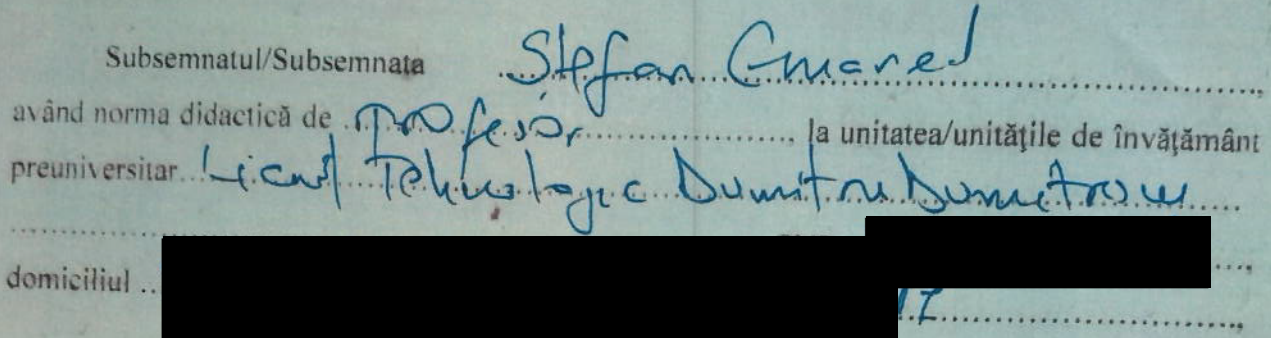 Subsemnatul/Subsemnata Ștefan
având norma didactică de profesor, la unitatea/unitățile de învățământ
preuniversitar Liceul Tehnologic Dumitru Dumitrescu
domiciliul